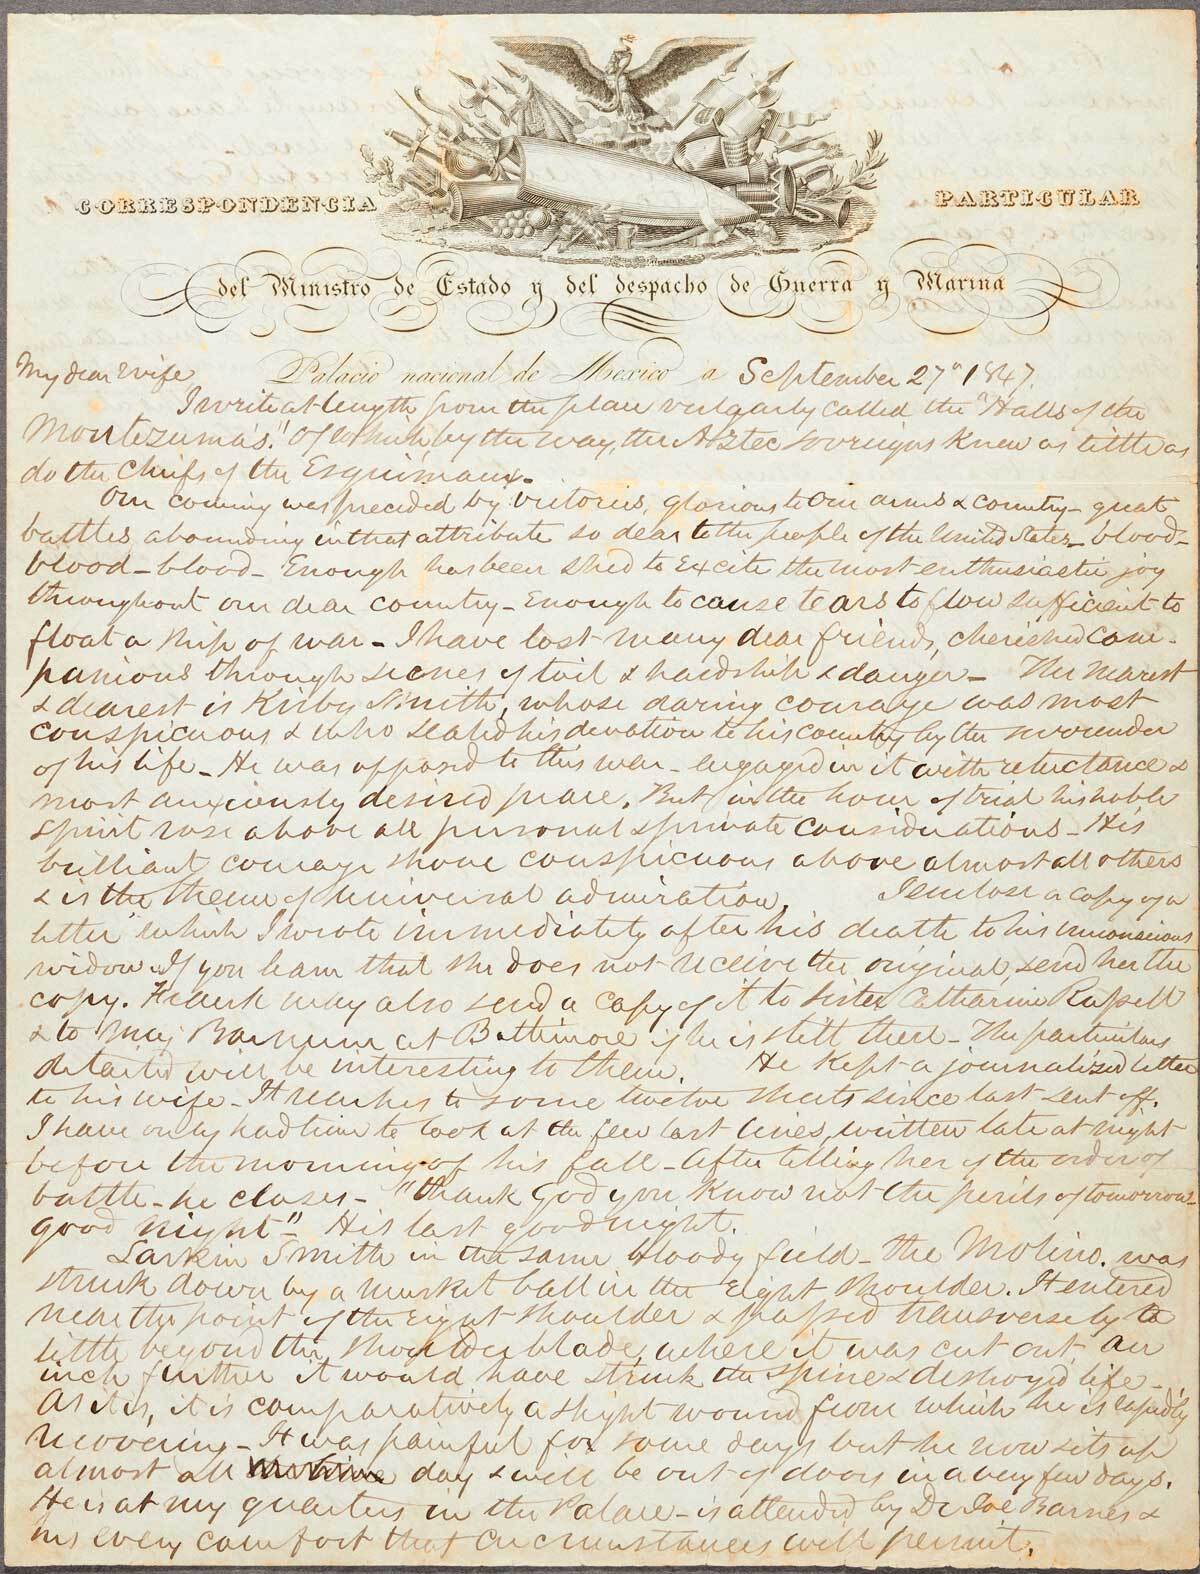 CORRESPONDENCIA PARTICULAR
del Ministro de Estado y del despacho de Guerra y Marina
My dear Wife, Palacio nacional de Mexico a September 27th 1847.
I write at length from the place vulgarly called the "Halls of the
Montezuma's." Of which, by the way, the Aztec sovereigns knew as little as
do the Chiefs of the Esquimaux.
Our coming was preceded by victories, glorious to our arms & country - great
battles abounding in that attribute so dear to the people of the United States - blood -
blood - blood - Enough has been shed to excite the most enthusiastic joy
throughout our dear country - Enough to cause tears to flow sufficient to
float a ship of war - I have lost many dear friends, cherished com-
panions through scenes of toil & hardship & danger - The nearest
& dearest is Kirby Smith, whose daring courage was most
conspicuous & who sealed his devotion to his country by the surrender
of his life - He was opposed to this war - engaged in it with reluctance &
most anxiously desired peace. But in the hour of trial his noble
spirit rose above all personal & private considerations - His
brilliant courage shone conspicuous above almost all others
& is the theme of universal admiration. I enclose a copy of a
letter which I wrote immediately after his death to his unconscious
widow. If you learn that she does not receive the original, send her the
copy. Frank may also send a copy of it to Sister Catharine Russell
& to Maj Barnum at Baltimore if he is still there - The particulars
detailed will be interesting to them. He kept a journalized letter
to his wife - It reaches to some twelve sheets since last sent off.
I have only had time to look at the few last lines, written late at night
before the morning of his fall - After telling her of the order of
battle - he closes - "thank God you know not the perils of tomorrow -
good night" - His last good night.
Larkin Smith in the same bloody field - the Molino. was
struck down by a musket ball in the right shoulder. It entered
near the point of the right shoulder & passed transversely to a
little beyond the shoulder blade, where it was cut out. An
inch further it would have struck the spine & destroyed life -
As it is, it is comparatively a slight wound from which he is rapidly
recovering - It was painful for some days but he now sits up
almost all day & will be out of doors in a very few days.
He is at my quarters in the Palace - is attended by Dr Joe Barnes &
has every comfort that circumstances will permit.